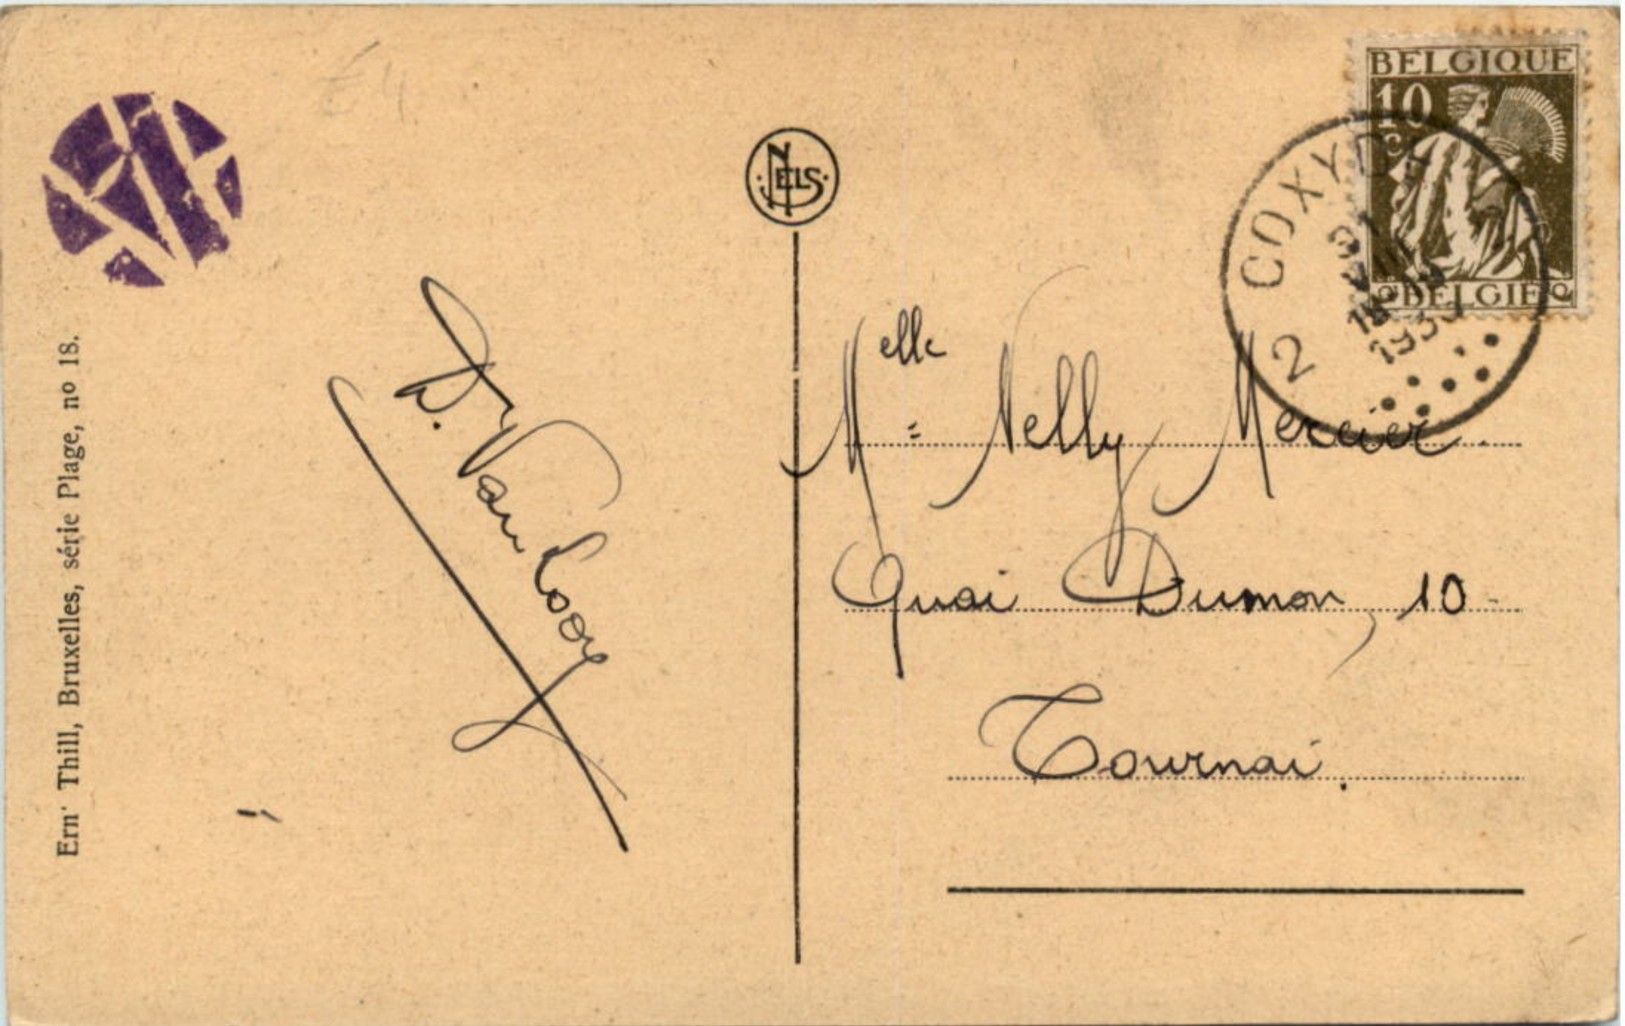 NELS
BELGIQUE
10
BELGIE
2 COXYDE
193
D. Van Looy
Melle Nelly Mercier.
Quai Dumon, 10
Tournai.
Ern. Thill, Bruxelles, série Plage, no 18.